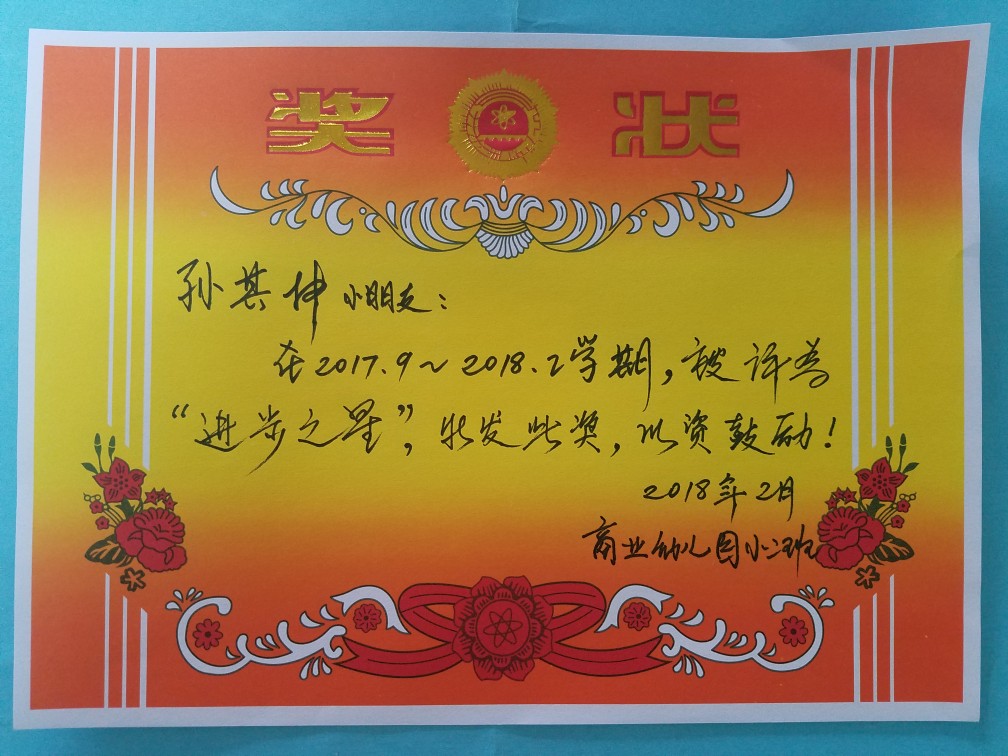 奖状
孙其坤小朋友：
在2017.9～2018.2学期，被评为
“进步之星”，特发此奖，以资鼓励！
2018年2月
商业幼儿园小二班